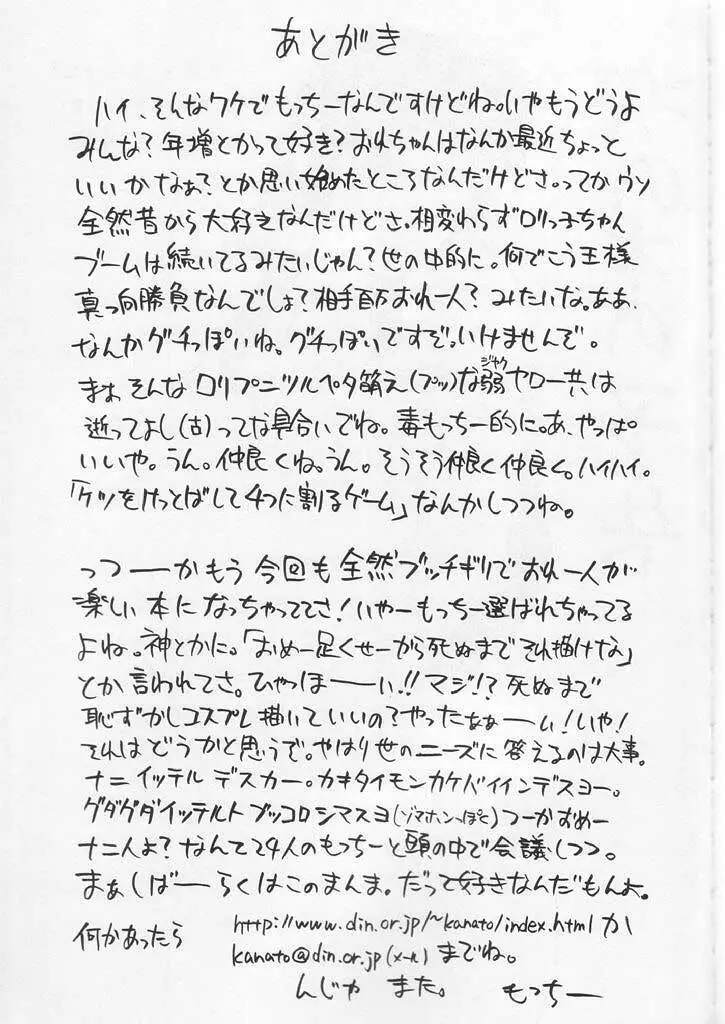 あとがき
ハイ、そんなワケでもっちーなんですけどね。いやもうどうよ
みんな？年増とかって好き？おれちゃんはなんか最近ちょっと
いいかなぁ？とか思い始めたところなんだけどさ。ってかウソ
全然昔から大好きなんだけどさ。相変わらずロリっ子ちゃん
ブームは続いてるみたいじゃん？世の中的に。何でこう王様
真っ向勝負なんでしょ？相手百万おれ一人？みたいな。ああ、
なんかグチっぽいね。グチっぽいですぞ。いけませんぞ。
まぁそんなロリプニツルペタ萌え(プッ)な弱ジャクヤロー共は
逝ってよし(古)ってな具合いでね。毒もっちー的に。あ、やっぱ
いいや。うん。仲良くね。うん。そうそう仲良く仲良く。ハイハイ。
「ケツをけっとばして4つに割るゲーム」なんかしつつね。
っつーーかもう今回も全然ブッチギリでおれ一人が
楽しい本になっちゃっててさ！いやーもっちー選ばれちゃってる
よね。神とかに。「おめー足くせーから死ぬまでそれ描けな」
とか言われてさ。ひゃっほーーい!!マジ!?死ぬまで
恥ずかしコスプレ描いていいの？やったなぁーい！いや！
それはどうかと思うで。やはり世のニーズに答えるのは大事。
ナニイッテルデスカー。カキタイモンカケバイインデスヨー。
グダグダイッテルトブッコロシマスヨ(ゾマホンっぽく)つーかおめー
ナニ人よ？なんて24人のもっちーと頭の中で会議しつつ。
まぁしばーらくはこのまんま。だって好きなんだもんよ。
何かあったら http://www.din.or.jp/~kanato/index.html か
kanato@din.or.jp(メール)までね。
んじゃ また。 もっちー